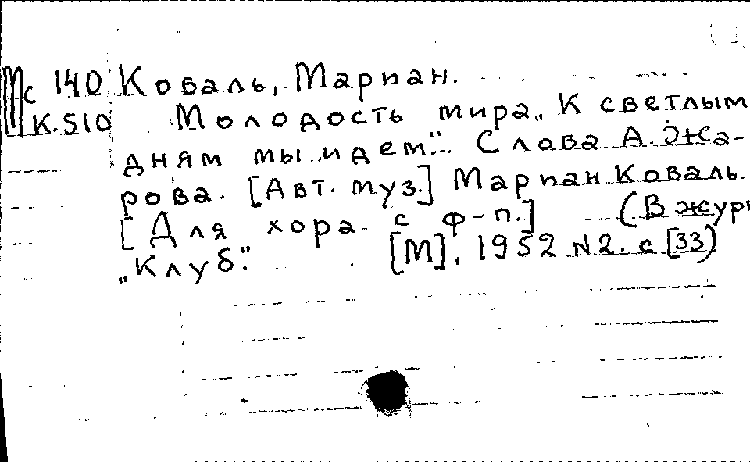 Мс 140 Коваль, Мариан.
К.510 Молодость мира „К светлым
дням мы идем". Слова А. Жа-
рова. [Авт. муз.] Мариан Коваль.
[Для хора с ф-п.] (В журн
„Клуб". [М], 1952 № 2. с [33)